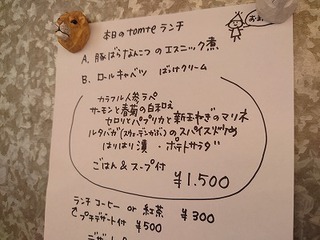 本日のtomteランチ
A. 豚ばらなんこつのエスニック煮
B. ロールキャベツ ばけクリーム
カラフル人参ラペ
サーモンと春菊の白和え
セロリとパプリカと新玉ねぎのマリネ
ルタバガ(スウェーデンかぶ)のスパイス炒め
はりはり漬・ポテトサラダ
ごはん&スープ付
¥1.500
ランチコーヒー or 紅茶 ¥300
プチデザート付 ¥500